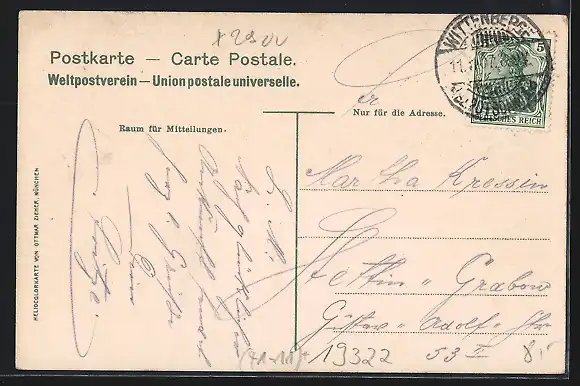 x 2900
Postkarte — Carte Postale.
Weltpostverein — Union postale universelle.
WITTENBERGE
5
DEUTSCHES REICH
Nur für die Adresse.
Raum für Mitteilungen.
HELIOCOLORKARTE VON OTTMAR ZIEHER, MÜNCHEN
L. M.
Nach glücklicher
Ankunft sendet
herzl. Grüße
Dein
Martha Kressin
Stettin - Grabow
Gustav - Adolf - Str
53 I
19322